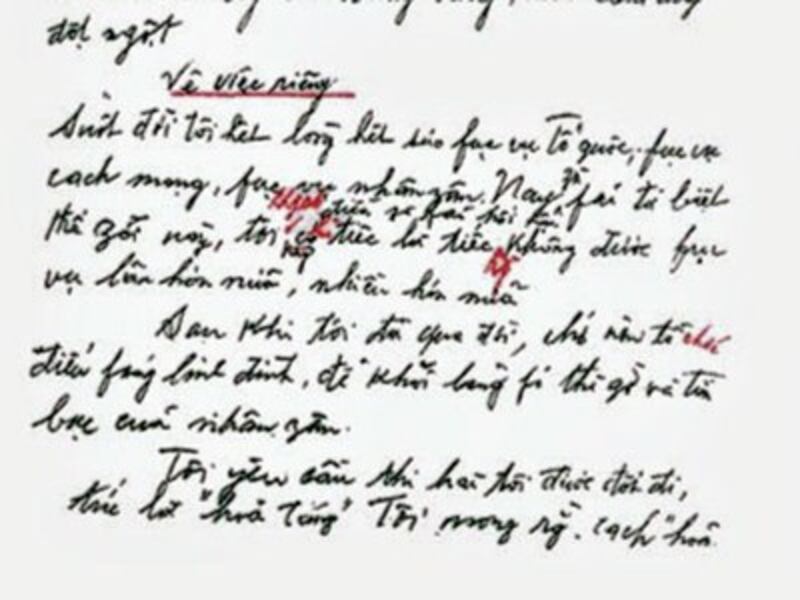 đột ngột
Về việc riêng
Suốt đời tôi hết lòng hết sức fục vụ Tổ quốc, fục vụ
cách mạng, fục vụ nhân zân. Nay zù fải từ biệt
thế zới này, tôi không có điều gì fải hối hận,
chỉ tiếc là tiếc rằng không được fục
vụ lâu hơn nữa, nhiều hơn nữa
Sau khi tôi đã qua đời, chớ nên tổ chức
điếu fúng linh đình, để khỏi lãng fí thì zờ và tiền
bạc của nhân zân.
Tôi yêu cầu thi hài tôi được đốt đi,
tức là "hoả táng" Tôi mong rằng cách "hoả